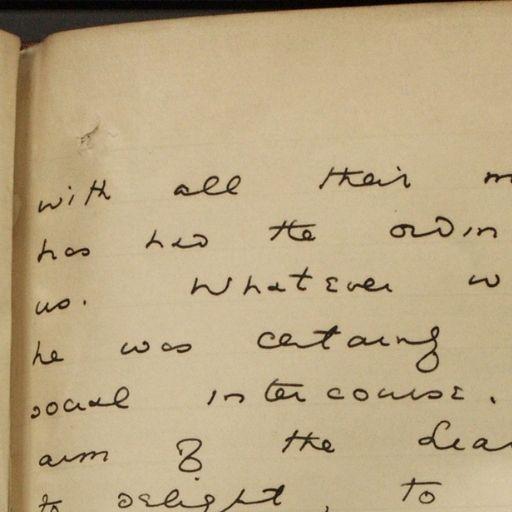 with all their m
has had the ordin
us. Whatever w
he was certainly
social intercourse.
aim of the dra
to delight, to